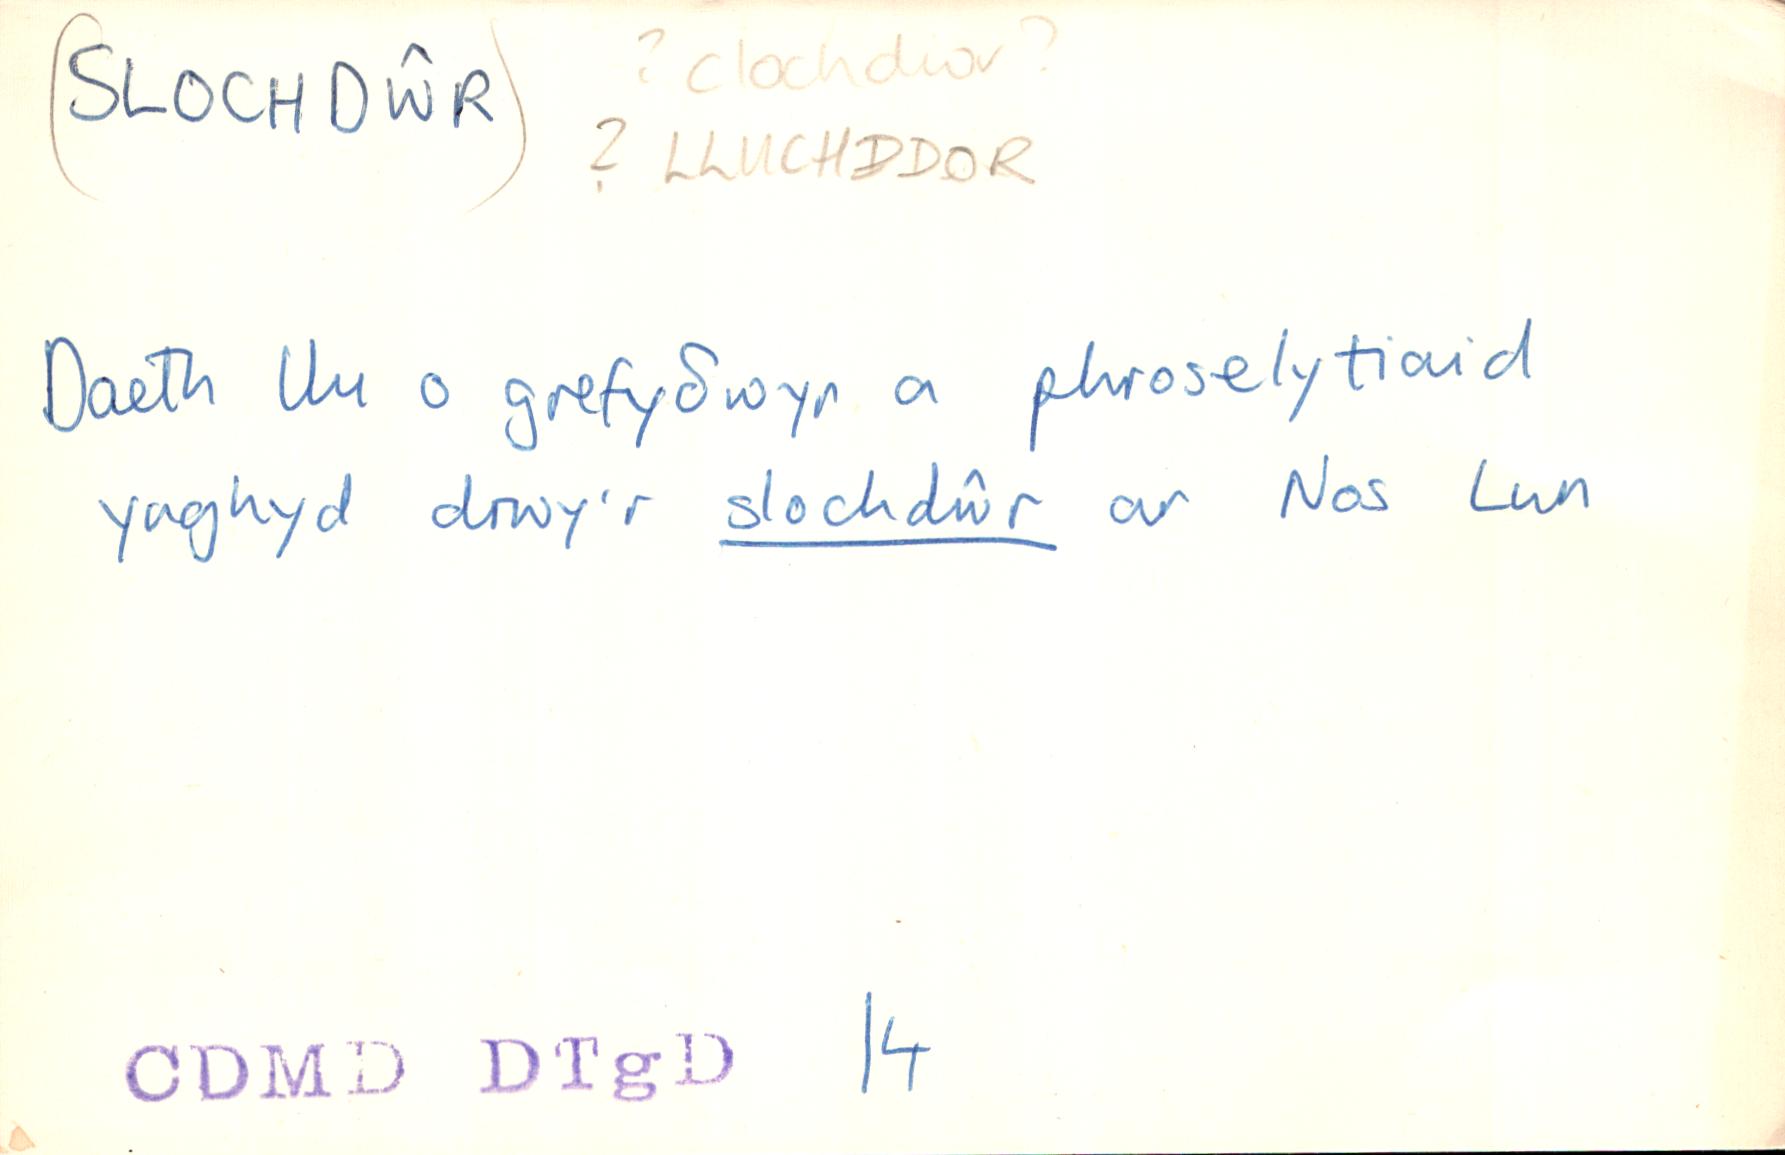 (SLOCHDŴR) ? clochdŵr ?
? LLUCHDDOR
Daeth llu o grefyδwyr a phroselytiaid
ynghyd drwy'r slochdŵr ar Nos Lun
CDMD DTgD 14